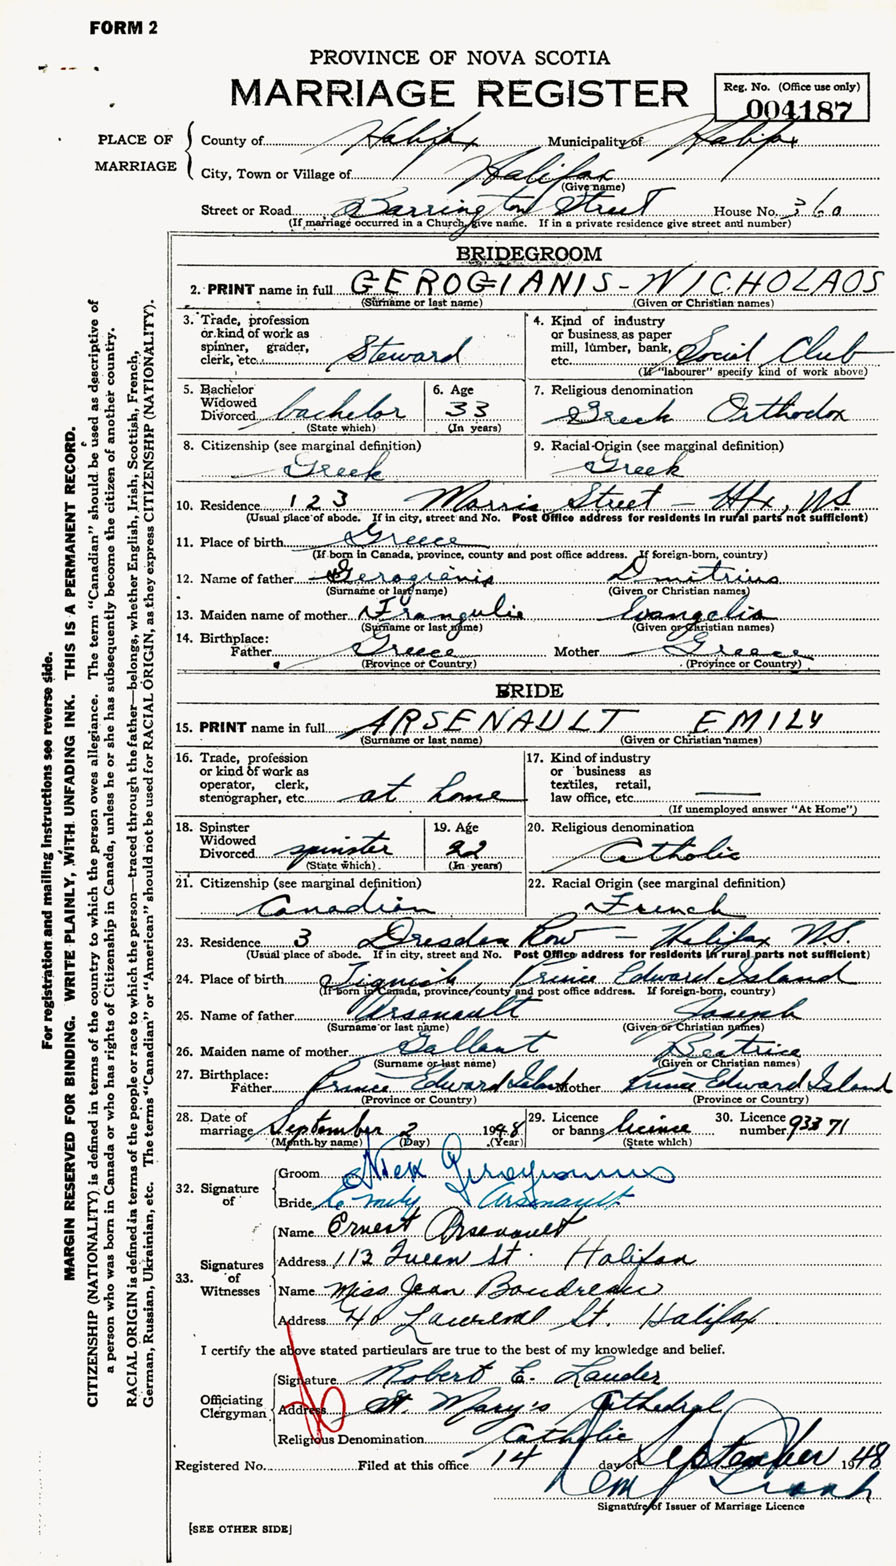 FORM 2
PROVINCE OF NOVA SCOTIA
MARRIAGE REGISTER
Reg. No. (Office use only)
004187
PLACE OF MARRIAGE
County of Halifax Municipality of Halifax
City, Town or Village of Halifax
(Give name)
Street or Road Barrington Street House No. 360
(If marriage occurred in a Church give name. If in a private residence give street and number)
BRIDEGROOM
2. PRINT name in full GEROGIANIS - NICHOLAOS
(Surname or last name) (Given or Christian names)
3. Trade, profession or kind of work as spinner, grader, clerk, etc. Steward
4. Kind of industry or business, as paper mill, lumber, bank, etc. Social Club
(If "labourer" specify kind of work above)
5. Bachelor Widowed Divorced bachelor
(State which)
6. Age 33
(In years)
7. Religious denomination
Greek Orthodox
8. Citizenship (see marginal definition)
Greek
9. Racial Origin (see marginal definition)
Greek
10. Residence 123 Morris Street - Hfx, NS
(Usual place of abode. If in city, street and No. Post Office address for residents in rural parts not sufficient)
11. Place of birth Greece
(If born in Canada, province, county and post office address. If foreign-born, country)
12. Name of father Gerogianis Dmitrius
(Surname or last name) (Given or Christian names)
13. Maiden name of mother Frangulie Evangelia
(Surname or last name) (Given or Christian names)
14. Birthplace:
Father Greece Mother Greece
(Province or Country) (Province or Country)
BRIDE
15. PRINT name in full ARSENAULT EMILY
(Surname or last name) (Given or Christian names)
16. Trade, profession or kind of work as operator, clerk, stenographer, etc. at home
17. Kind of industry or business as textiles, retail, law office, etc. —
(If unemployed answer "At Home")
18. Spinster Widowed Divorced spinster
(State which)
19. Age 22
(In years)
20. Religious denomination
Catholic
21. Citizenship (see marginal definition)
Canadian
22. Racial Origin (see marginal definition)
French
23. Residence 3 Dresden Row - Halifax N.S.
(Usual place of abode. If in city, street and No. Post Office address for residents in rural parts not sufficient)
24. Place of birth Tignish, Prince Edward Island
(If born in Canada, province, county and post office address. If foreign-born, country)
25. Name of father Arsenault Joseph
(Surname or last name) (Given or Christian names)
26. Maiden name of mother Gallant Beatrice
(Surname or last name) (Given or Christian names)
27. Birthplace:
Father Prince Edward Island Mother Prince Edward Island
(Province or Country) (Province or Country)
28. Date of marriage September 2 1948
(Month by name) (Day) (Year)
29. Licence or banns licence
(State which)
30. Licence number 93371
32. Signature of
Groom Nick
Bride Emily Arsenault
33. Signatures of Witnesses
Name Ernest Arsenault
Address 113 Queen St. Halifax
Name Miss Jean Boudreau
Address 40 St. Halifax
I certify the above stated particulars are true to the best of my knowledge and belief.
Officiating Clergyman
Signature Robert E. Lauder
Address St. Mary's Cathedral
Religious Denomination Catholic
Registered No. Filed at this office 14 day of September 1948
Signature of Issuer of Marriage Licence
[SEE OTHER SIDE]
For registration and mailing instructions see reverse side.
MARGIN RESERVED FOR BINDING. WRITE PLAINLY, WITH UNFADING INK. THIS IS A PERMANENT RECORD.
CITIZENSHIP (NATIONALITY) is defined in terms of the country to which the person owes allegiance. The term "Canadian" should be used as descriptive of
a person who was born in Canada or who has rights of Citizenship in Canada, unless he or she has subsequently become the citizen of another country.
RACIAL ORIGIN is defined in terms of the people or race to which the person—traced through the father—belongs, whether English, Irish, Scottish, French,
German, Russian, Ukrainian, etc. The terms "Canadian" or "American" should not be used for RACIAL ORIGIN, as they express CITIZENSHIP (NATIONALITY).